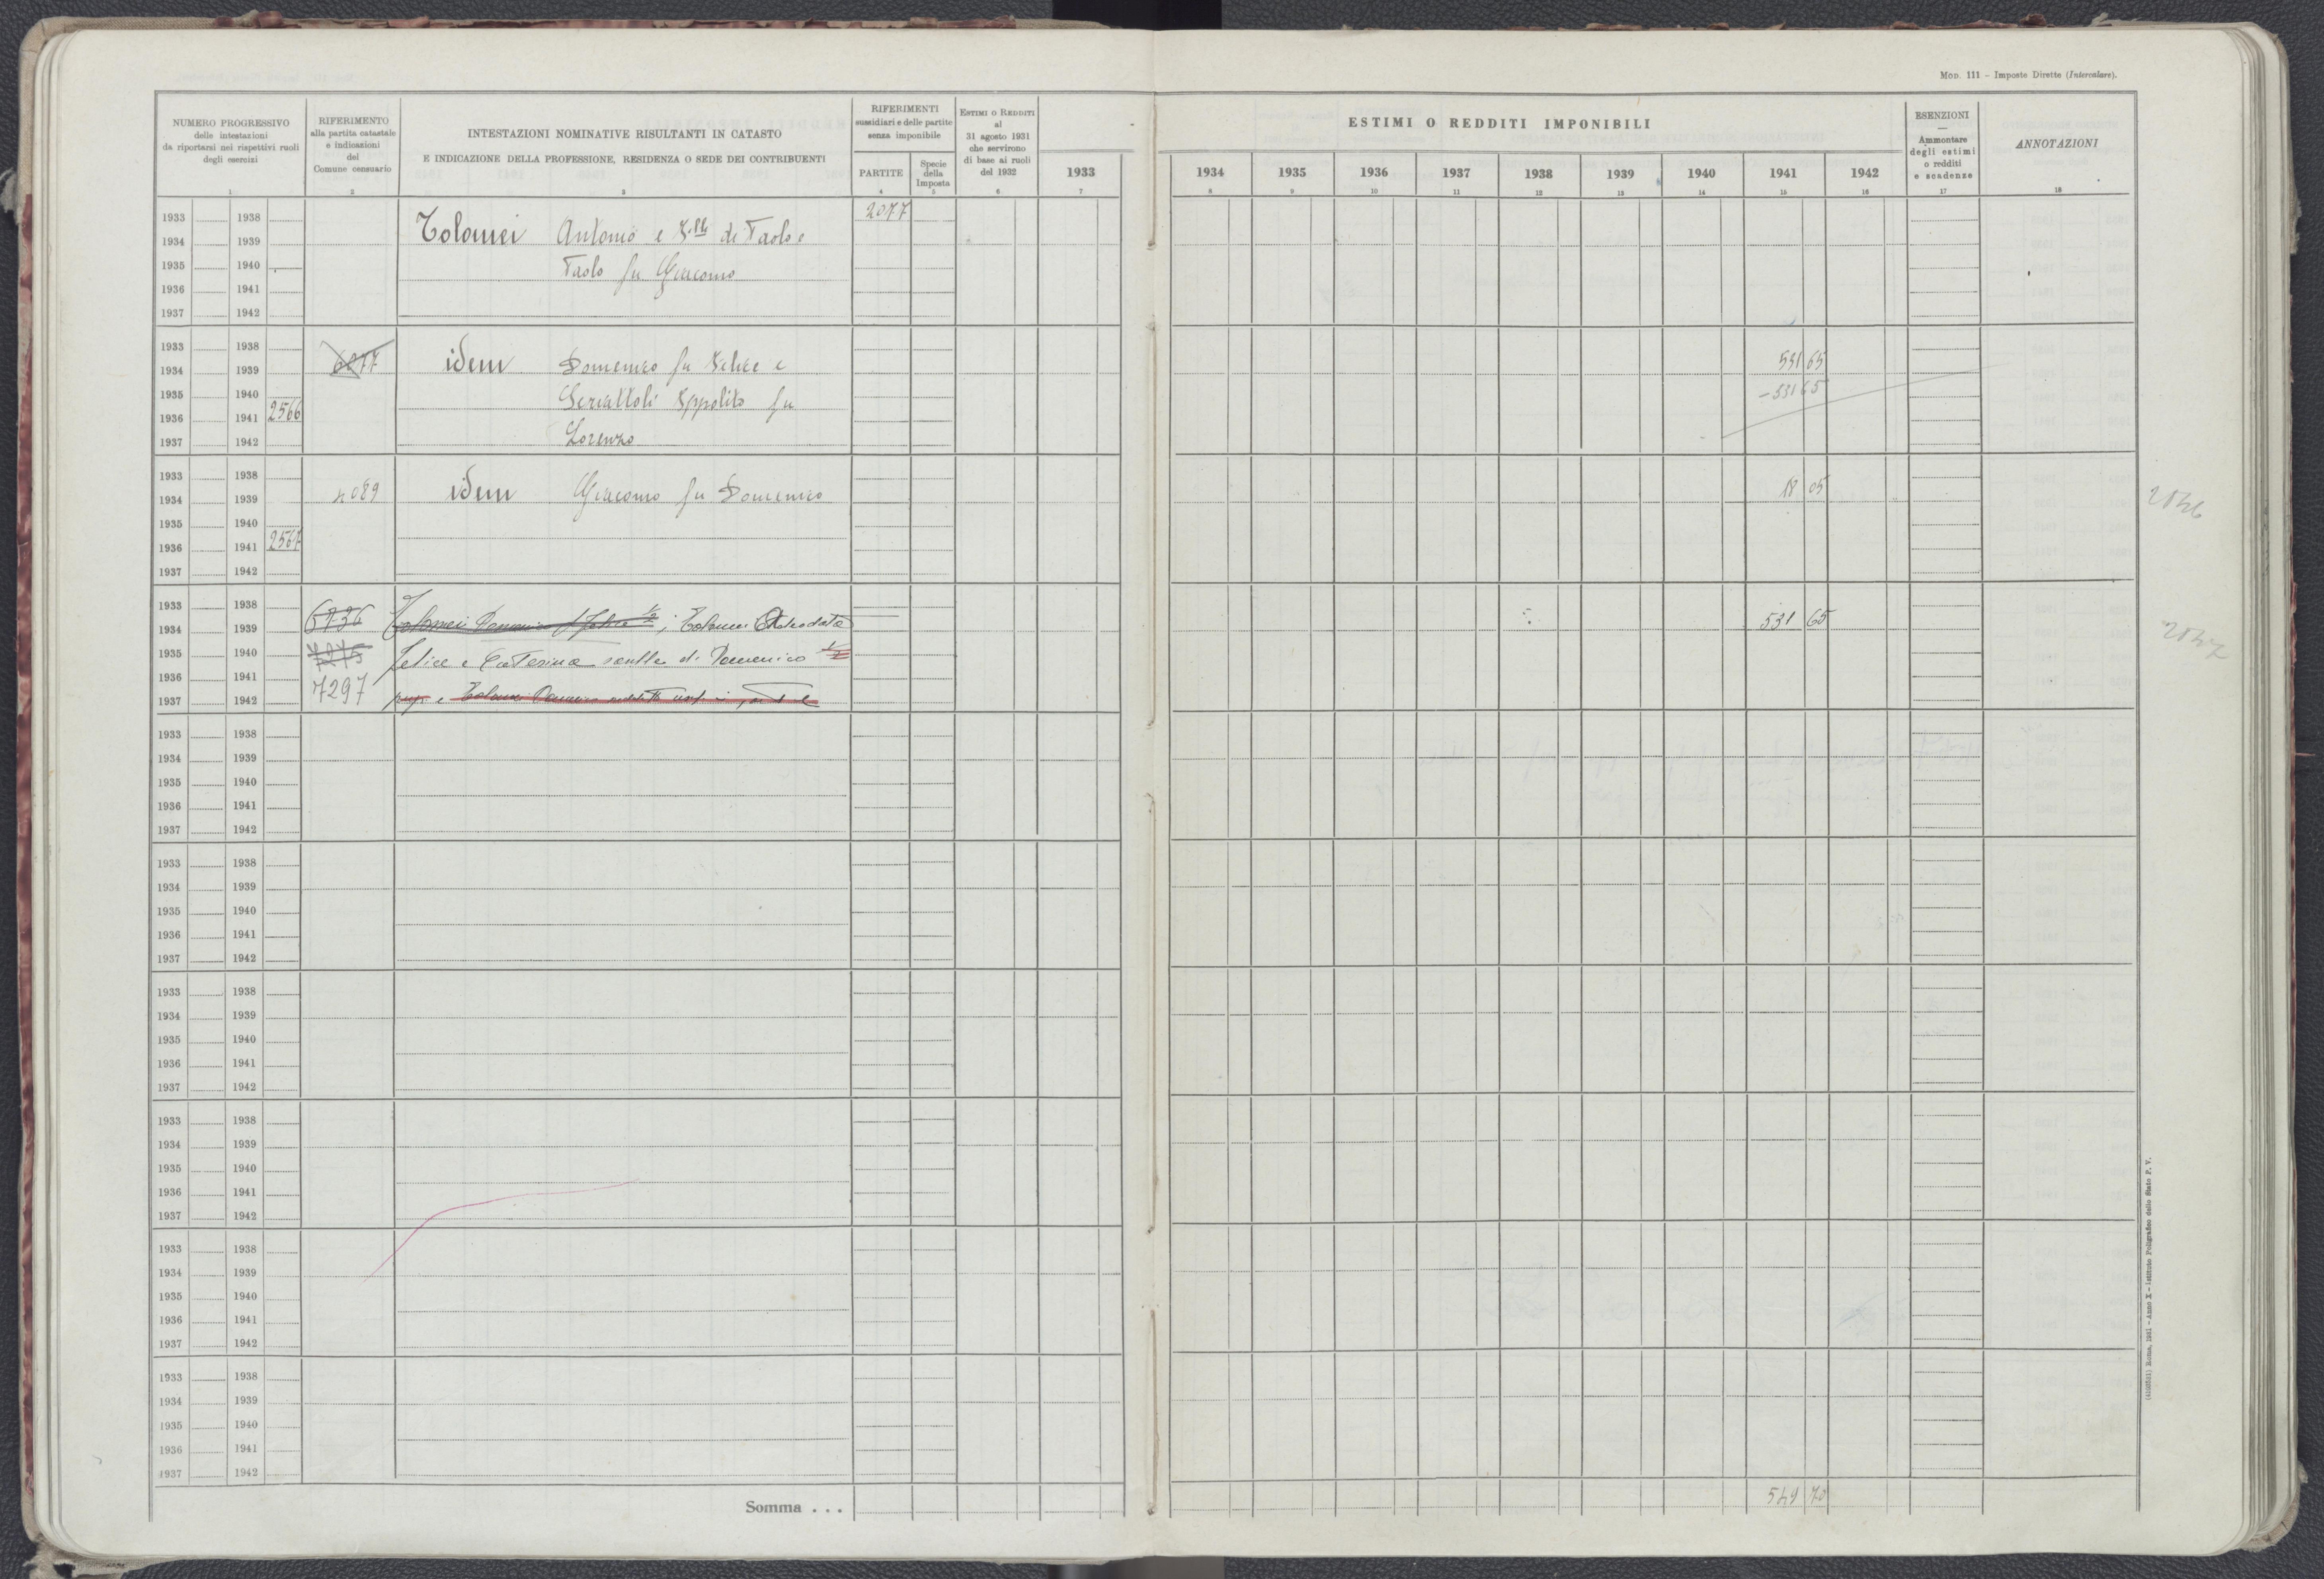 MOD. 111 – Imposte Dirette (Intercalare).
NUMERO PROGRESSIVO
delle intestazioni
da riportarsi nei rispettivi ruoli
degli esercizi
1
RIFERIMENTO
alla partita catastale
e indicazioni
del
Comune censuario
2
INTESTAZIONI NOMINATIVE RISULTANTI IN CATASTO
E INDICAZIONE DELLA PROFESSIONE, RESIDENZA O SEDE DEI CONTRIBUENTI
3
RIFERIMENTI
sussidiari e delle partite
senza imponibile
PARTITE
4
Specie
della
Imposta
5
ESTIMI O REDDITI
al
31 agosto 1931
che servirono
di base ai ruoli
del 1932
6
1933
7
ESTIMI O REDDITI IMPONIBILI
1934 1935 1936 1937 1938 1939 1940 1941 1942
8 9 10 11 12 13 14 15 16
ESENZIONI
—
Ammontare
degli estimi
o redditi
e scadenze
17
ANNOTAZIONI
18
1933 1938 2077
1934 1939 Tolomei Antonio e F.lli di Paolo e
1935 1940 Paolo fu Giacomo
1936 1941
1937 1942
1933 1938
1934 1939 6077 idem Domenico fu Felice e 531 65
1935 1940 Ippolito fu – 531 65
1936 1941 2566
1937 1942 Lorenzo
1933 1938
1934 1939 4089 idem Giacomo fu Domenico 18 05
1935 1940
1936 1941 2567
1937 1942
1933 1938 6736
1934 1939 Tolomei Domenico f Felice 1/2; Tolomei 531 65
1935 1940 7275 Felice e Caterina di Domenico 1/2
1936 1941 7297
1937 1942 e Tolomei Domenico
1933 1938
1934 1939
1935 1940
1936 1941
1937 1942
1933 1938
1934 1939
1935 1940
1936 1941
1937 1942
1933 1938
1934 1939
1935 1940
1936 1941
1937 1942
1933 1938
1934 1939
1935 1940
1936 1941
1937 1942
1933 1938
1934 1939
1935 1940
1936 1941
1937 1942
1933 1938
1934 1939
1935 1940
1936 1941
1937 1942
Somma . . . 549 70
Roma, 1931 – Anno X – Istituto Poligrafico dello Stato P. V.